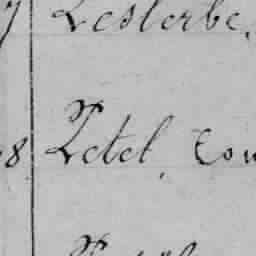 7 Lesterbe,
8 Letel, Cou